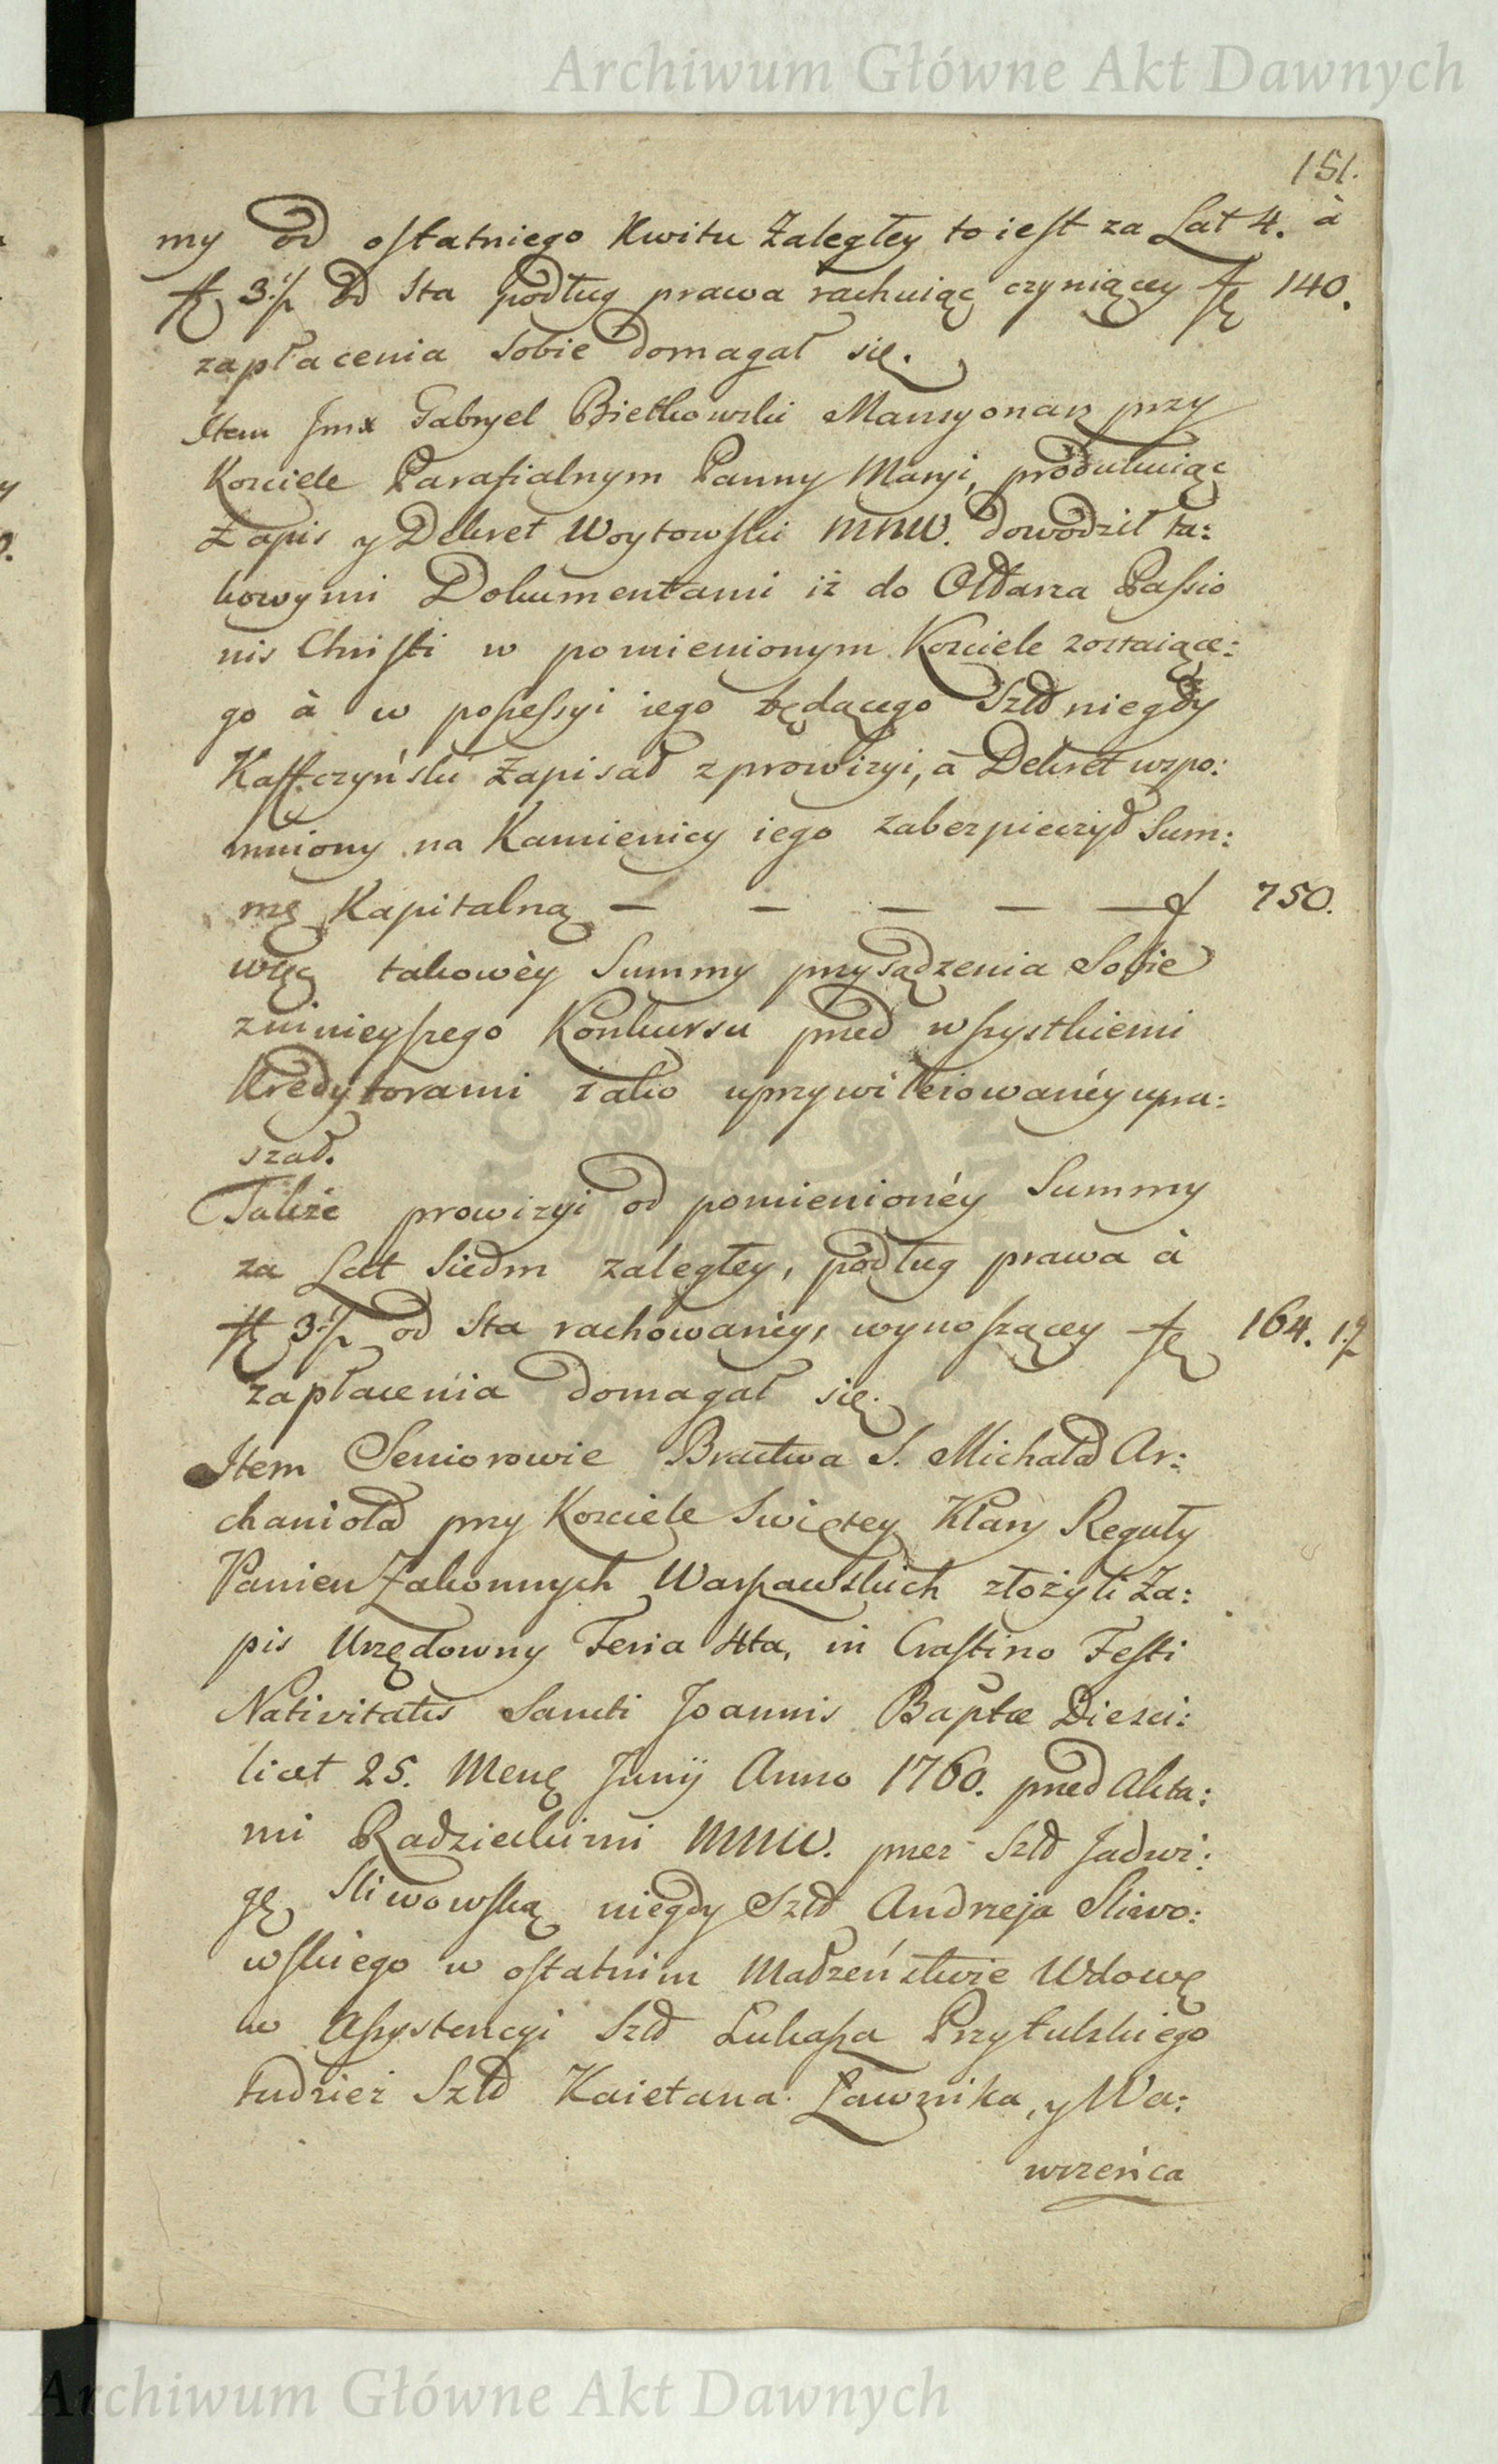 Archiwum Główne Akt Dawnych
151.
my od ostatniego Kwitu Zaległey to iest za Lat 4. à
3½ od sta podług prawa rachuiąc czyniącey 140.
zapłacenia sobie domagał się.
Item Jmx Gabryel Bietkowski Mansyonarz przy
Kosciele Parafialnym Panny Maryi, produkuiąc
Zapis y Dekret Woytowski MNW. dowodził ta:
kowymi Dokumentami iż do Ołtarza Passio
nis Christi w pomienionym Kosciele zostaiące:
go à w possessyi iego będącego Szld niegdy
Zapisał z prowizyi, à Dekret wspo:
mniony na Kamienicy iego zabezpieczył Sum:
mę Kapitalną — — — — — 750.
więc takowèy Summy przysądzenia Sobie
z ninieyszego Konkursu przed wszystkiemi
Kredytorami iako uprzywileiowanéy upra:
szał.
Także prowizyi od pomienionéy Summy
za Lat Siedm zaległey, podług prawa à
3½ od sta rachowanéy, wynoszącey 164. 1½
zapłacenia domagał się.
Item Seniorowie Bractwa S. Michała Ar:
chanioła przy Kosciele Swiętey Klary Reguły
Panien Zakonnych Warszawskich złożyli Za:
pis Urzędowny Feria 4ta, in Crastino Festi
Nativitatis Sancti Joannis Baptæ Die sci:
licet 25. Mens Junij Anno 1760. przed Akta:
mi Radzieckimi MNW. przez Szld Jadwi:
gę Sliwowską niegdy Szld Andrzeja Sliwo:
wskiego w ostatnim Małżeństwie Wdowę
w Assystencyi Szld Lukasza Przytulskiego
tudzież Szld Kaietana Ławnika, y Wa:
wrzeńca
Archiwum Główne Akt Dawnych